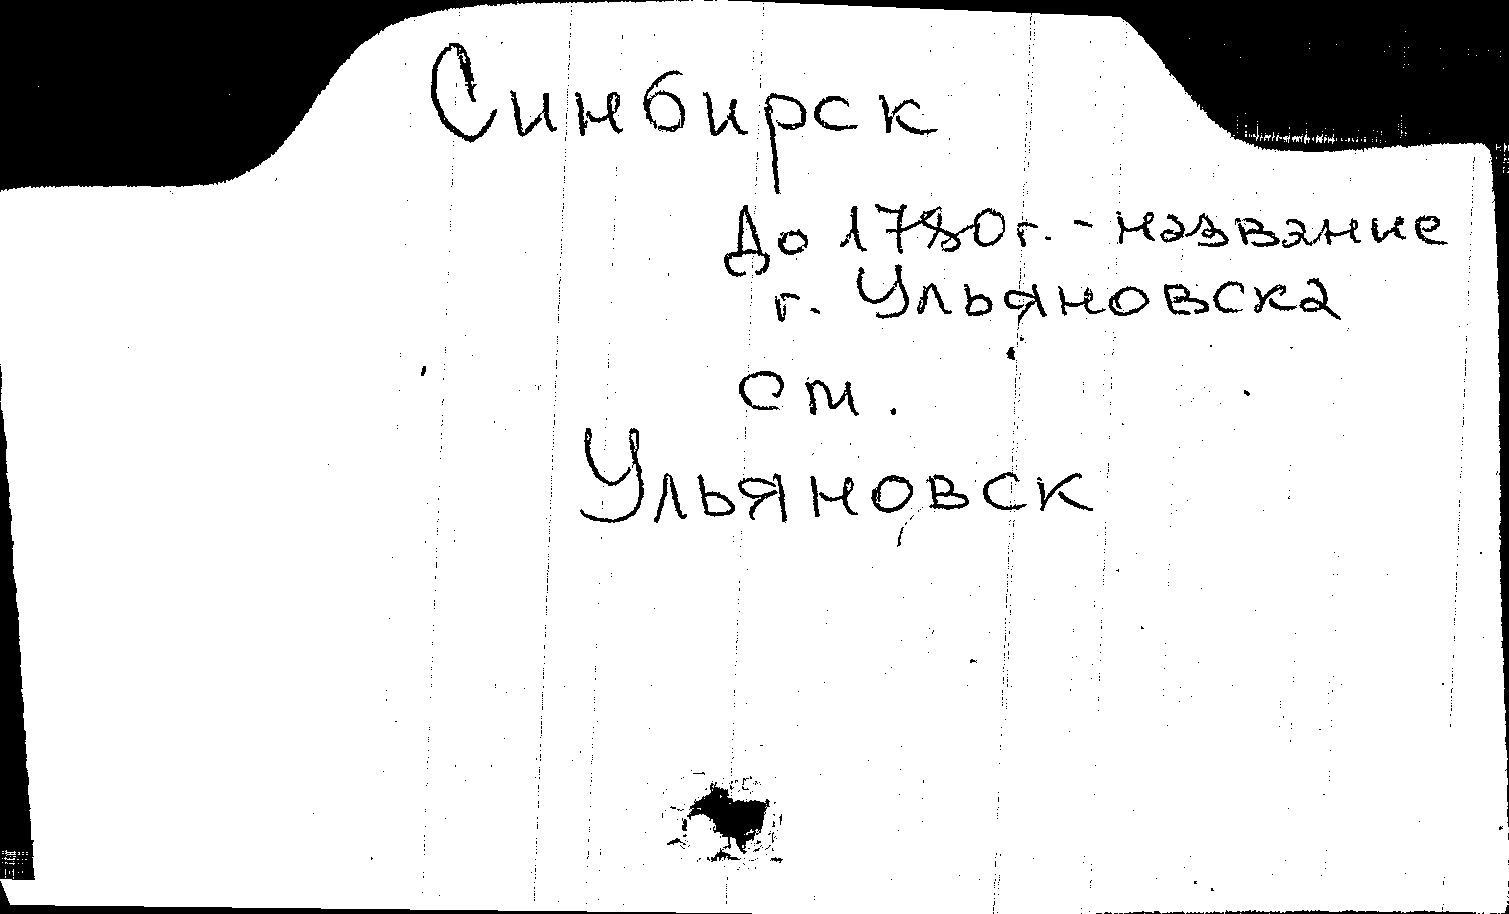 Синбирск
До 1780 г. - название
г. Ульяновска
см.
Ульяновск